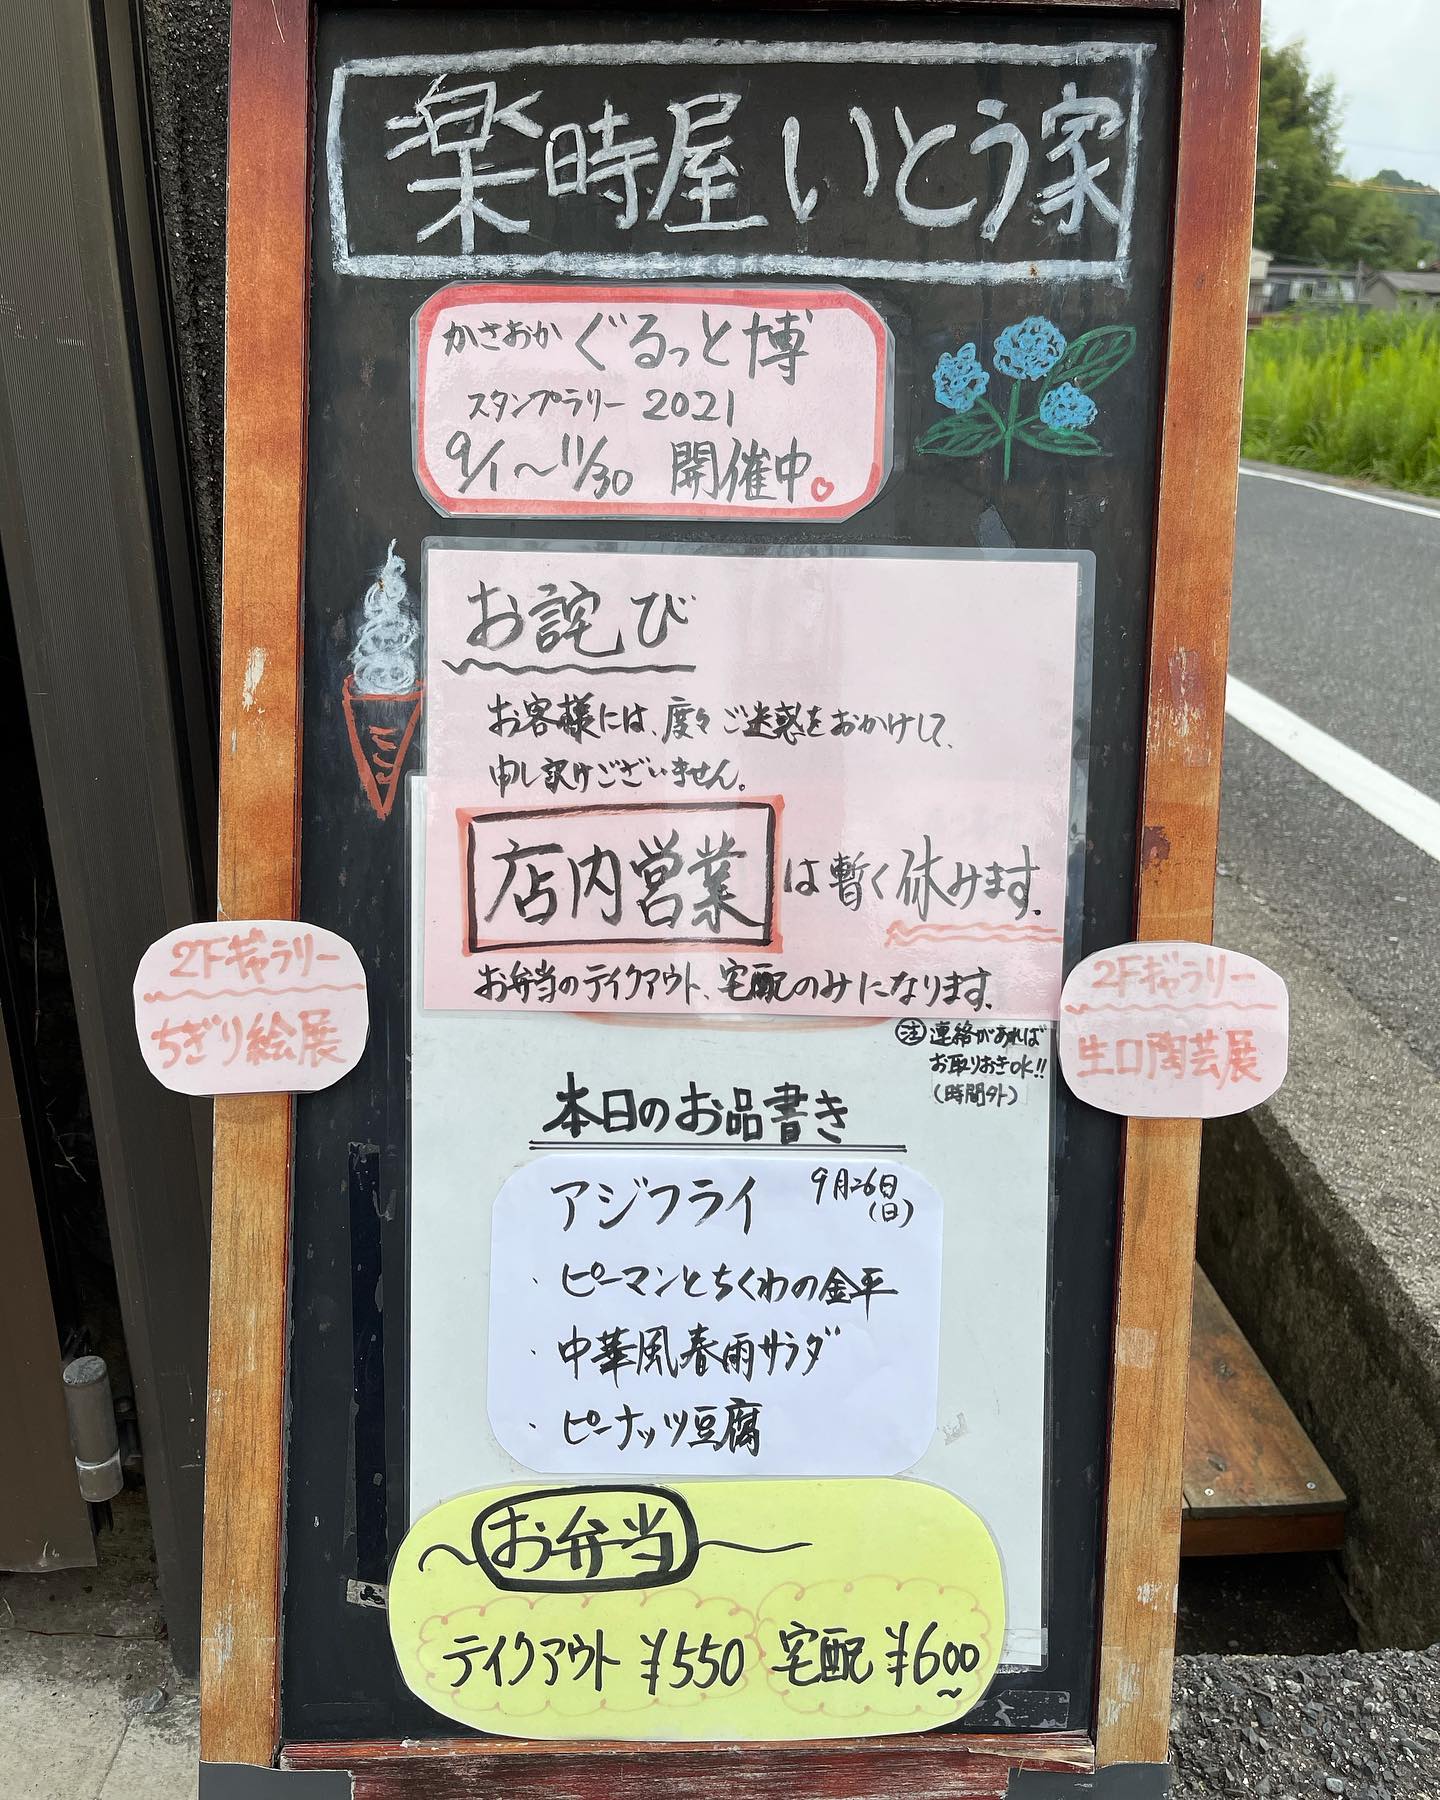 楽時屋いとう家
かさおか ぐるっと博
スタンプラリー 2021
9/1〜11/30 開催中。
お詫び
お客様には、度々ご迷惑をおかけして、
申し訳けございません。
店内営業は暫く休みます。
お弁当のテイクアウト、宅配のみになります。
注 連絡があれば
お取りおきOK!!
(時間外)
2Fギャラリー
ちぎり絵展
2Fギャラリー
生口陶芸展
本日のお品書き
9月26日
(日)
アジフライ
・ピーマンとちくわの金平
・中華風春雨サラダ
・ピーナッツ豆腐
〜お弁当〜
テイクアウト ¥550 宅配 ¥600〜